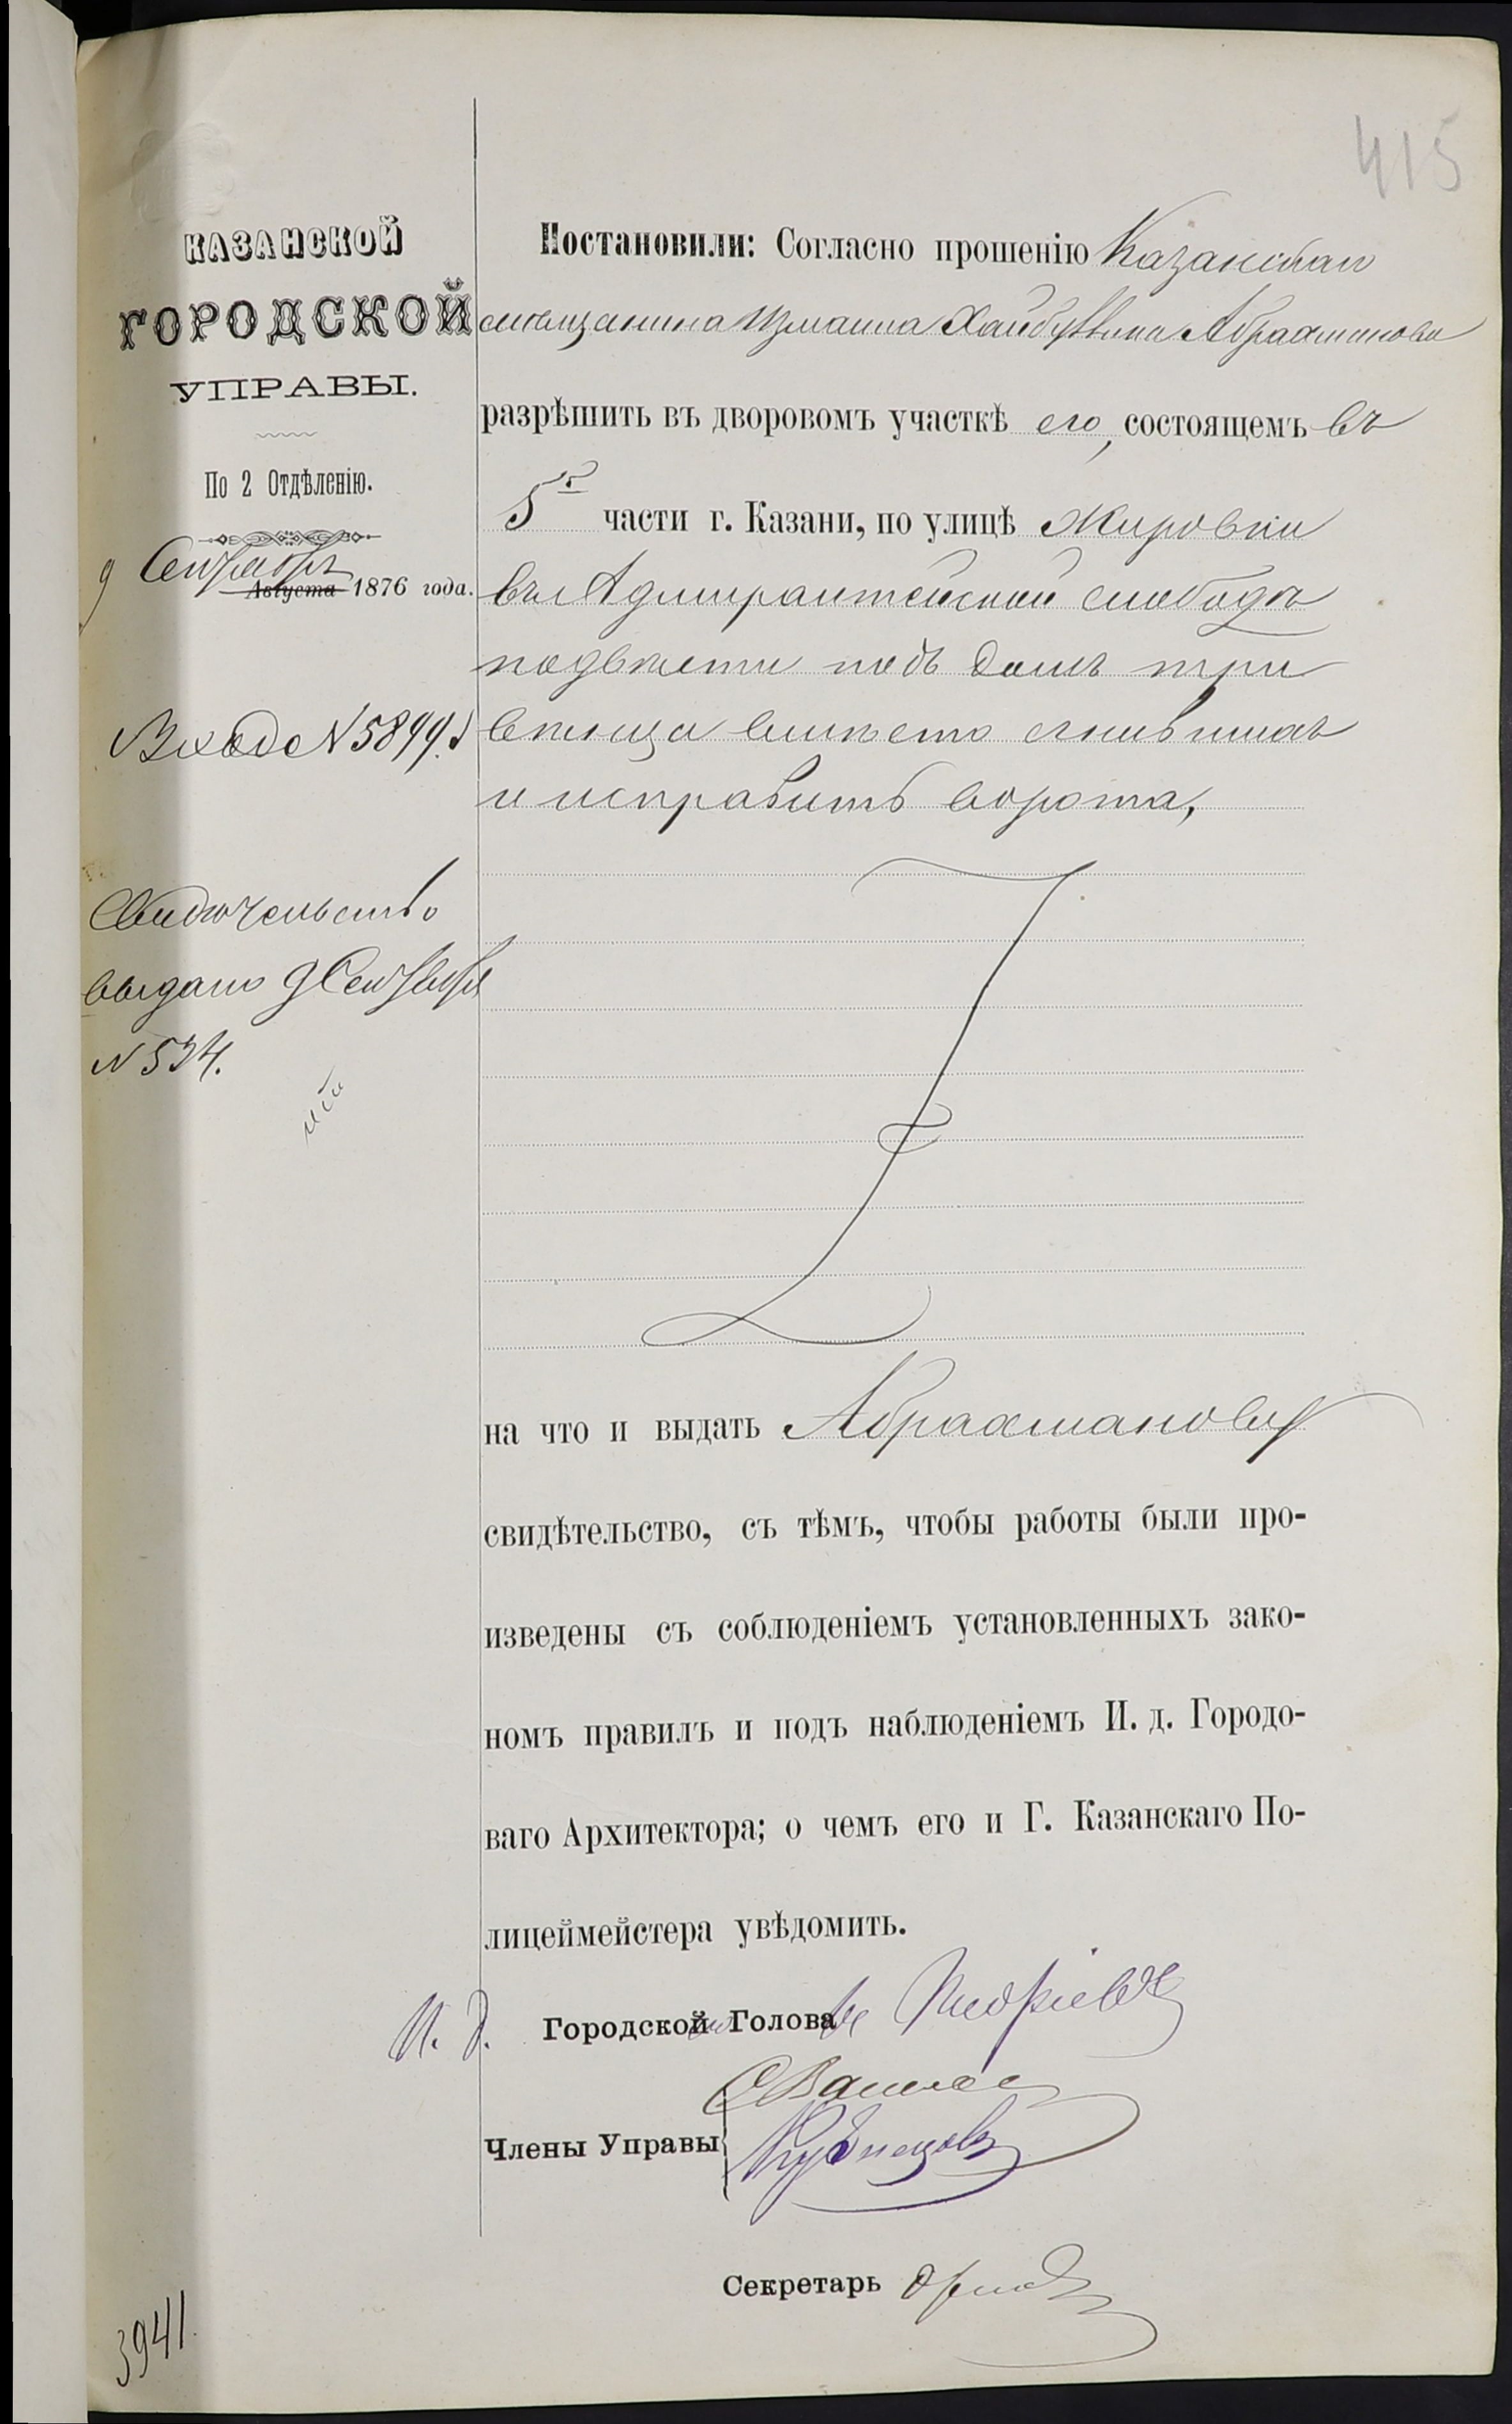 415
КАЗАНСКОЙ
ГОРОДСКОЙ
УПРАВЫ.
По 2 Отдѣленію.
9 Сентября
Августа 1876 года.
Вход № 5899.
Свидетельство
выдано 9 Сентября
№ 534.
Постановили: Согласно прошенію Казанскаго
мѣщанина Измаила Хайбуллина Абрахманова
разрѣшить въ дворовомъ участкѣ его, состоящемъ въ
5й части г. Казани, по улицѣ Жировки
въ Адмиралтейской слободѣ
подвести подъ домъ три
венца вместо сгнившихъ
и исправить ворота,
на что и выдать Абрахманову
свидѣтельство, съ тѣмъ, чтобы работы были про-
изведены съ соблюденіемъ установленныхъ зако-
номъ правилъ и подъ наблюденіемъ И. д. Городо-
ваго Архитектора; о чемъ его и Г. Казанскаго По-
лицеймейстера увѣдомить.
И. д. Городской Голова
Члены Управы
Кузнецовъ
Секретарь
3941.